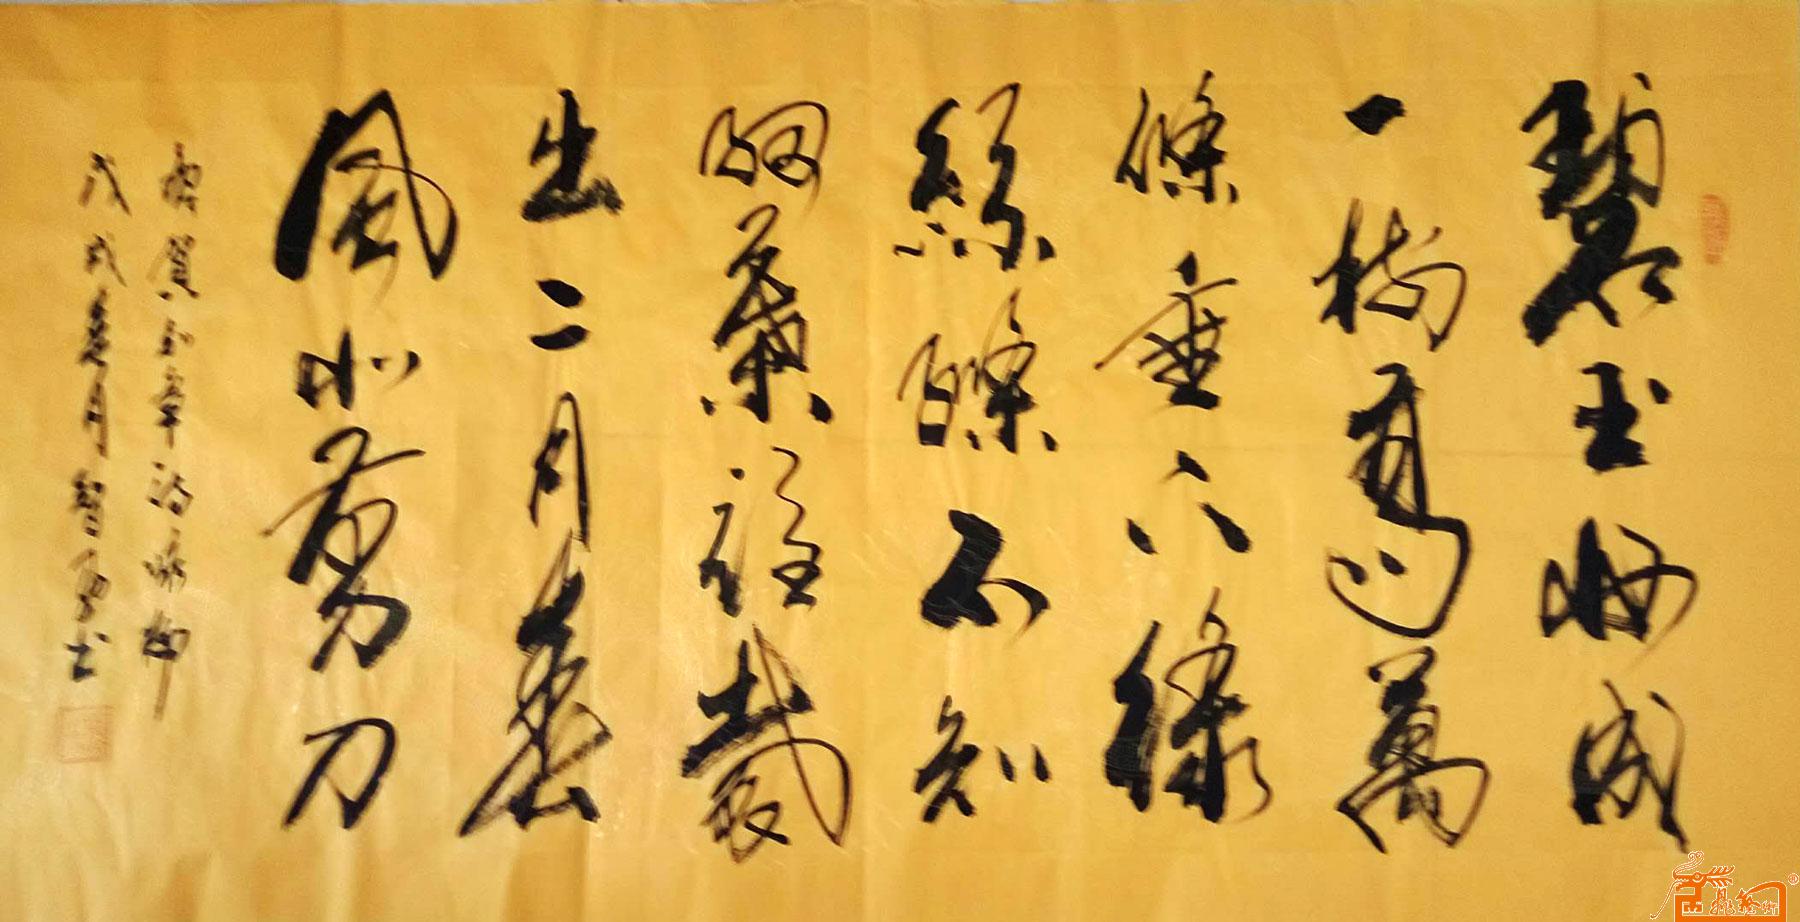 碧玉妝成
一樹高萬
條垂下綠
絲絛不知
細葉誰裁
出二月春
風似剪刀
唐賀知章詩咏柳
戊戌春月智书